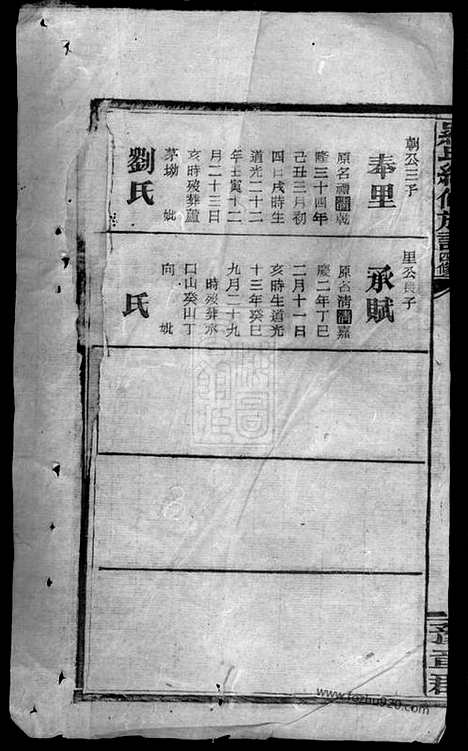 朝公三子
奉里
原名禮清乾
隆三十四年
己丑三月初
四日戌時生
道光二十二
年壬寅十二
月二十三日
亥時歿葬蘆
茅坳 妣
劉氏
里公長子
承賦
原名清清嘉
慶二年丁巳
二月十一日
亥時生道光
十三年癸巳
九月二十九
時歿葬水
口山癸山丁
向 妣
氏